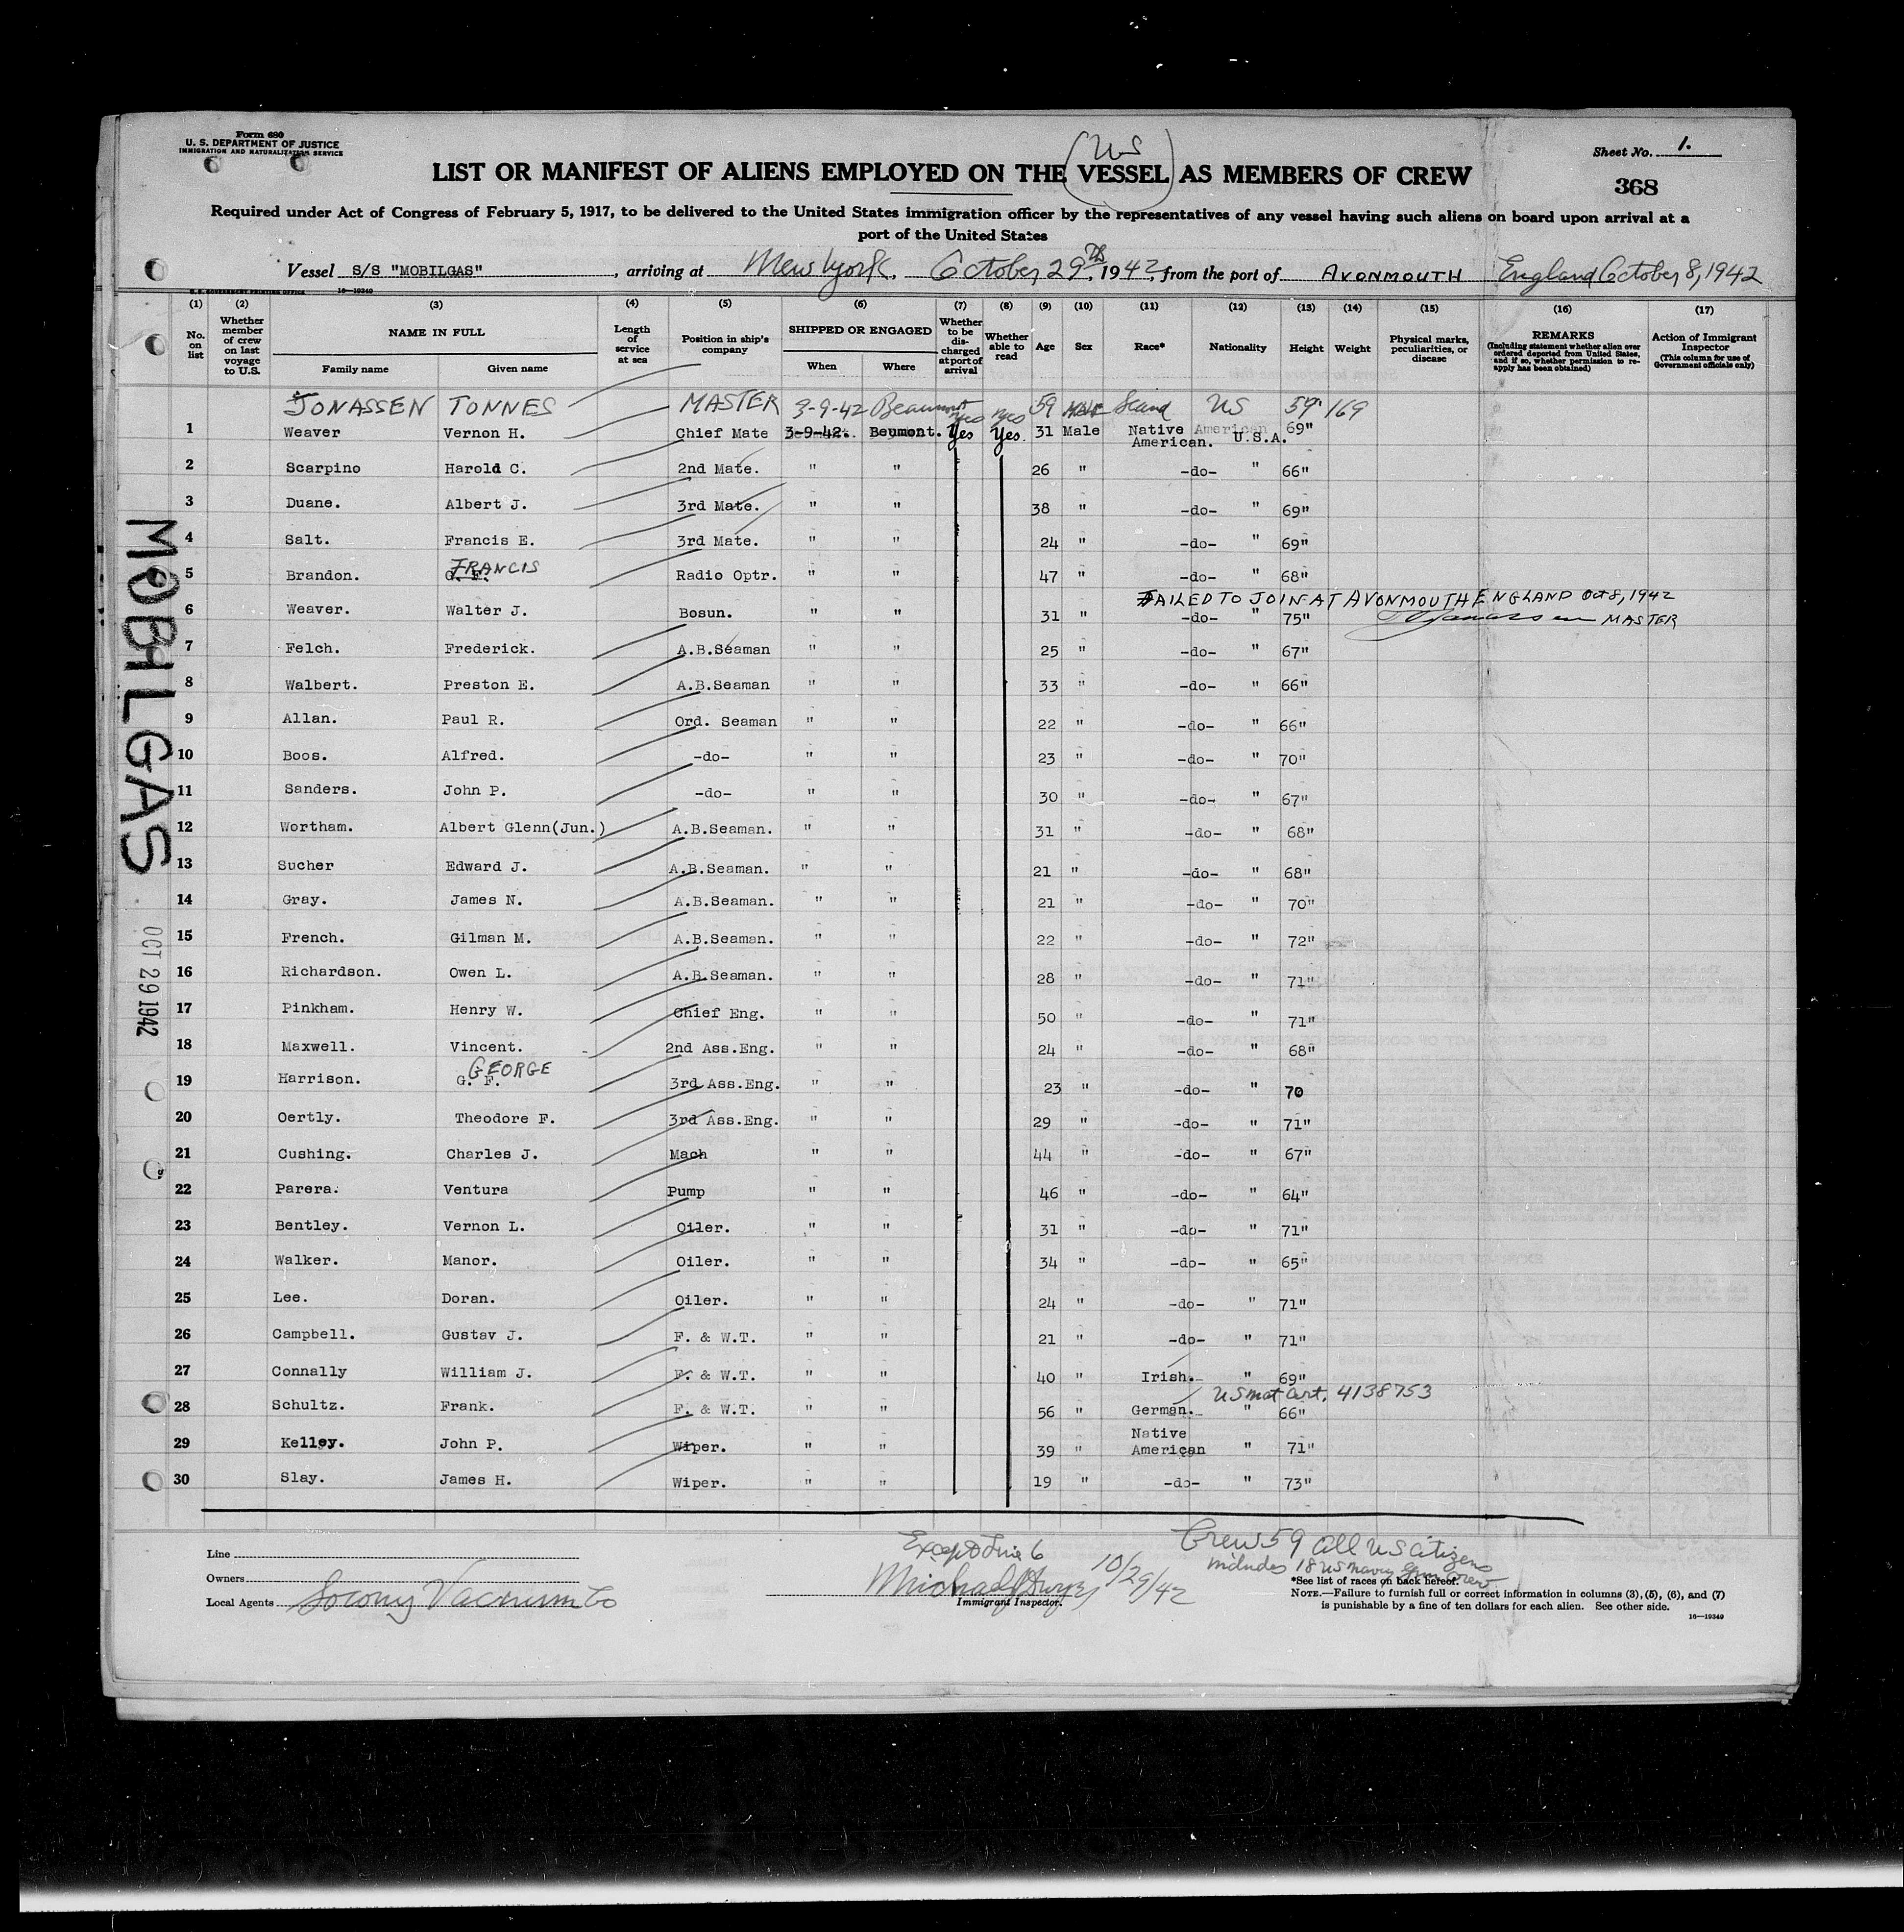 Form 680
U. S. DEPARTMENT OF JUSTICE
IMMIGRATION AND NATURALIZATION SERVICE
Sheet No. 1.
368
(US)
LIST OR MANIFEST OF ALIENS EMPLOYED ON THE VESSEL AS MEMBERS OF CREW
Required under Act of Congress of February 5, 1917, to be delivered to the United States immigration officer by the representatives of any vessel having such aliens on board upon arrival at a
port of the United States
Vessel S/S "MOBILGAS", arriving at New York, October 29th, 1942, from the port of AVONMOUTH England October 8, 1942
U.S. GOVERNMENT PRINTING OFFICE 16—19340
(1) (2) (3) (4) (5) (6) (7) (8) (9) (10) (11) (12) (13) (14) (15) (16) (17)
No. on list
Whether member of crew on last voyage to U.S.
NAME IN FULL
Family name Given name
Length of service at sea
Position in ship's company
SHIPPED OR ENGAGED
When Where
Whether to be discharged at port of arrival
Whether able to read
Age
Sex
Race*
Nationality
Height
Weight
Physical marks, peculiarities, or disease
REMARKS
(Including statement whether alien ever ordered deported from United States, and if so, whether permission to reapply has been obtained)
Action of Immigrant Inspector
(This column for use of Government officials only)
JONASSEN TONNES MASTER 3-9-42 Beaumont Yes Yes 59 Male Scand US 5'7" 169
1 Weaver Vernon H. Chief Mate 3-9-42. Beumont. Yes Yes. 31 Male Native American. American U.S.A. 69"
2 Scarpino Harold C. 2nd Mate. " " 26 " -do- " 66"
3 Duane. Albert J. 3rd Mate. " " 38 " -do- " 69"
4 Salt. Francis E. 3rd Mate. " " 24 " -do- " 69"
5 Brandon. G. F. FRANCIS Radio Optr. " " 47 " -do- " 68"
FAILED TO JOIN AT AVONMOUTH ENGLAND Oct 8, 1942
6 Weaver. Walter J. Bosun. " " 31 " -do- " 75" T Jonassen MASTER
7 Felch. Frederick. A.B.Seaman " " 25 " -do- " 67"
8 Walbert. Preston E. A.B.Seaman " " 33 " -do- " 66"
9 Allan. Paul R. Ord. Seaman " " 22 " -do- " 66"
10 Boos. Alfred. -do- " " 23 " -do- " 70"
11 Sanders. John P. -do- " " 30 " -do- " 67"
12 Wortham. Albert Glenn(Jun.) A.B.Seaman. " " 31 " -do- " 68"
13 Sucher Edward J. A.B.Seaman. " " 21 " -do- " 68"
14 Gray. James N. A.B.Seaman. " " 21 " -do- " 70"
15 French. Gilman M. A.B.Seaman. " " 22 " -do- " 72"
16 Richardson. Owen L. A.B.Seaman. " " 28 " -do- " 71"
17 Pinkham. Henry W. Chief Eng. " " 50 " -do- " 71"
18 Maxwell. Vincent. 2nd Ass.Eng. " " 24 " -do- " 68"
19 Harrison. G. F. GEORGE 3rd Ass.Eng. " " 23 " -do- " 70
20 Oertly. Theodore F. 3rd Ass.Eng. " " 29 " -do- " 71"
21 Cushing. Charles J. Mach " " 44 " -do- " 67"
22 Parera. Ventura Pump " " 46 " -do- " 64"
23 Bentley. Vernon L. Oiler. " " 31 " -do- " 71"
24 Walker. Manor. Oiler. " " 34 " -do- " 65"
25 Lee. Doran. Oiler. " " 24 " -do- " 71"
26 Campbell. Gustav J. F. & W.T. " " 21 " -do- " 71"
27 Connally William J. F. & W.T. " " 40 " Irish. " 69"
US nat Cert. 4138753
28 Schultz. Frank. F. & W.T. " " 56 " German. " 66"
29 Kelley. John P. Wiper. " " 39 " Native American " 71"
30 Slay. James H. Wiper. " " 19 " -do- " 73"
MOBILGAS
OCT 29 1942
Line
Owners
Local Agents Socony Vacuum Co
Except Line 6
Michael Dwyer 10/29/42
Immigrant Inspector.
Crew 59 all US citizens
includes 18 US navy gun crew
*See list of races on back hereof.
NOTE.—Failure to furnish full or correct information in columns (3), (5), (6), and (7)
is punishable by a fine of ten dollars for each alien. See other side.
16—19340